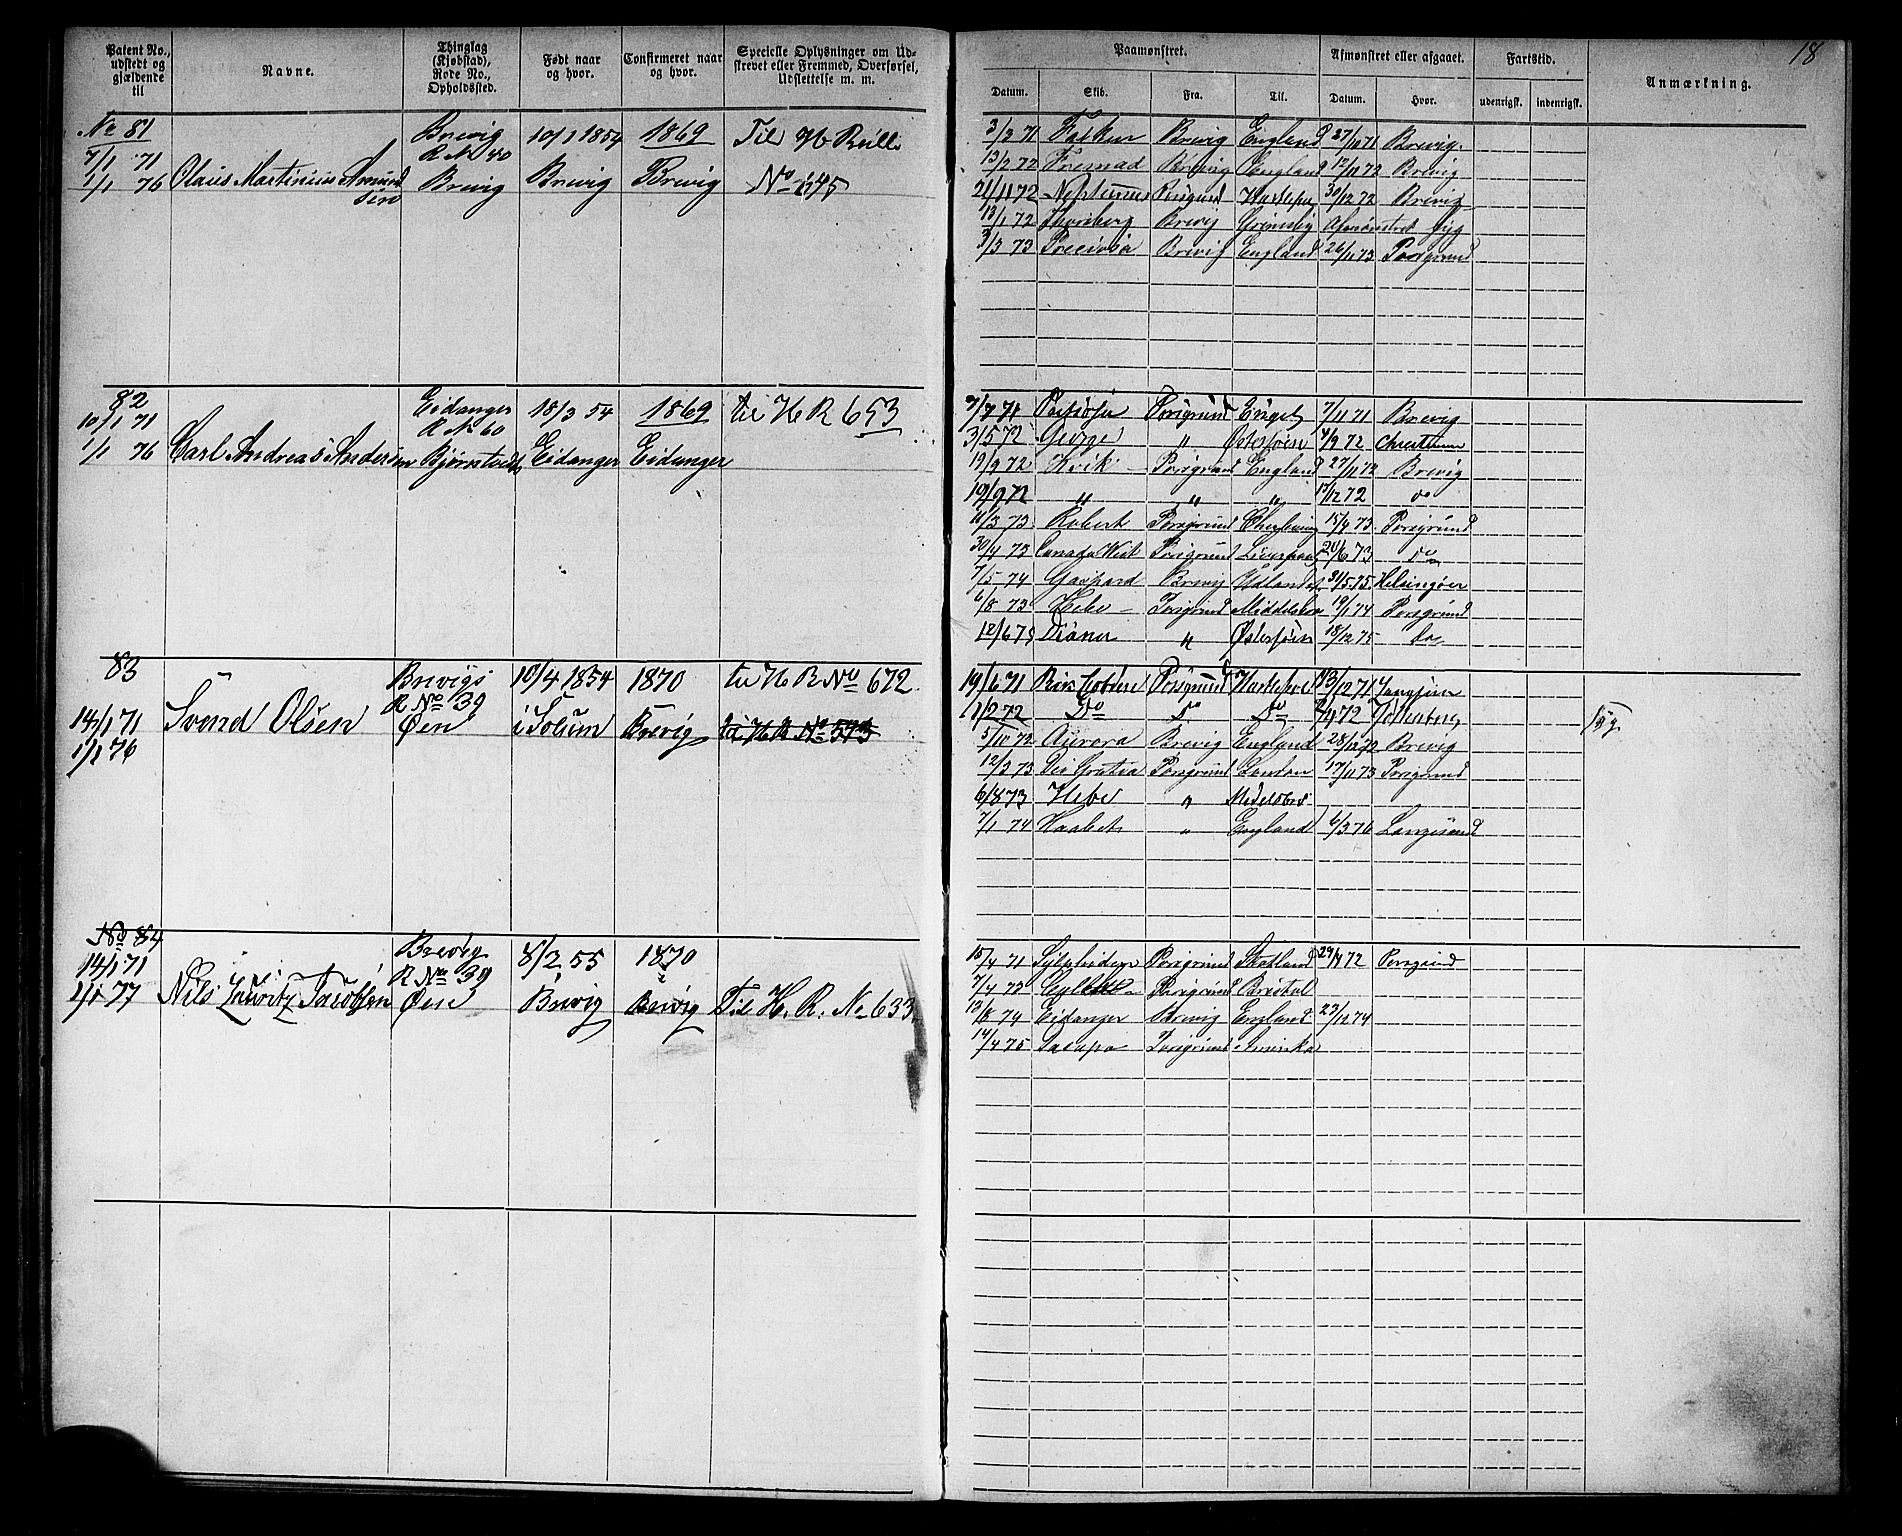 18
Patent No., udstedt og gjældende til
Navne.
Thinglag (Kjøbstad), Rode No., Opholdssted.
Født naar og hvor.
Confirmeret naar og hvor.
Specielle Oplysninger om Udskrevet eller Fremmed, Overførsel, Udslettelse m. m.
Paamønstret.
Afmønstret eller afgaaet.
Fartstid.
Anmærkning.
Datum. Skib. Fra. Til. Datum. Hvor. udenrigsk. indenrigsk.
No 81 Brevig 10/1 1854 1869 Til H Rull
7/1 71 R No 40
1/1 76 Olaus Martinius Amundsen Brevig Brevig Brevig No 645
3/3 71 Falken Brevig England 27/10 71 Brevig.
13/2 72 Fremad Brevig England 12/11 72 Brevig
21/11 72 Neptunus Porsgrund 30/12 72 Brevig
13/1 72 Brevig Afmønstret syg
3/3 73 Preciosa Brevig England 26/11 73 Porsgrund
82 Eidanger 18/3 54 1869 til H R 653
10/1 71 R No 60
1/1 76 Carl Andreas Andersen Bjørntvedt Eidanger Eidanger
7/7 71 Porsgrund 7/11 71 Brevig
3/5 72 George " Østersøen 4/9 72
19/9 72 Kvik Porsgrund England 27/11 72 Brevig
19/9 72 " " " 17/12 72 do
11/3 73 Robert Porsgrund 15/4 73 Porsgrund
30/4 73 Canada West Porsgrund Liverpool 24/6 73 do
7/5 74 Gaspard Brevig Udlandet 31/5 75 Helsingøer
6/8 73 Hebe Porsgrund Middelsbro 19/1 74 Porsgrund
12/6 75 Diana " Østersøen 18/12 75 do
83 Brevigs 10/4 1854 1870 til H R No 672
R No 39
14/1 71 Svend Olsen Øen i Solum Brevig til H R No 573
1/1 76
19/6 71 Porsgrund Hartlepool 13/12 71
1/2 72 Do Do Do 72 Syg.
5/10 72 Aurora Brevig England 28/12 72 Brevig
12/3 73 Dei Gratia Porsgrund London 17/11 73 Porsgrund
6/8 73 Hebe " Midelsbro
7/1 74 Haabet " England 6/3 76 Langesund
No 84 Brevig 8/2 55 1870
14/1 71 R No 39
1/1 77 Nils Lauritz Jacobsen Øen Brevig Brevig Til H. R. No 633
15/4 71 Sylphiden Porsgrund Skotland 29/4 72 Porsgrund
7/4 73 Porsgrund Bristol
13/8 74 Eidanger Brevig England 23/12 74
14/4 75 Porsgrund Amerika